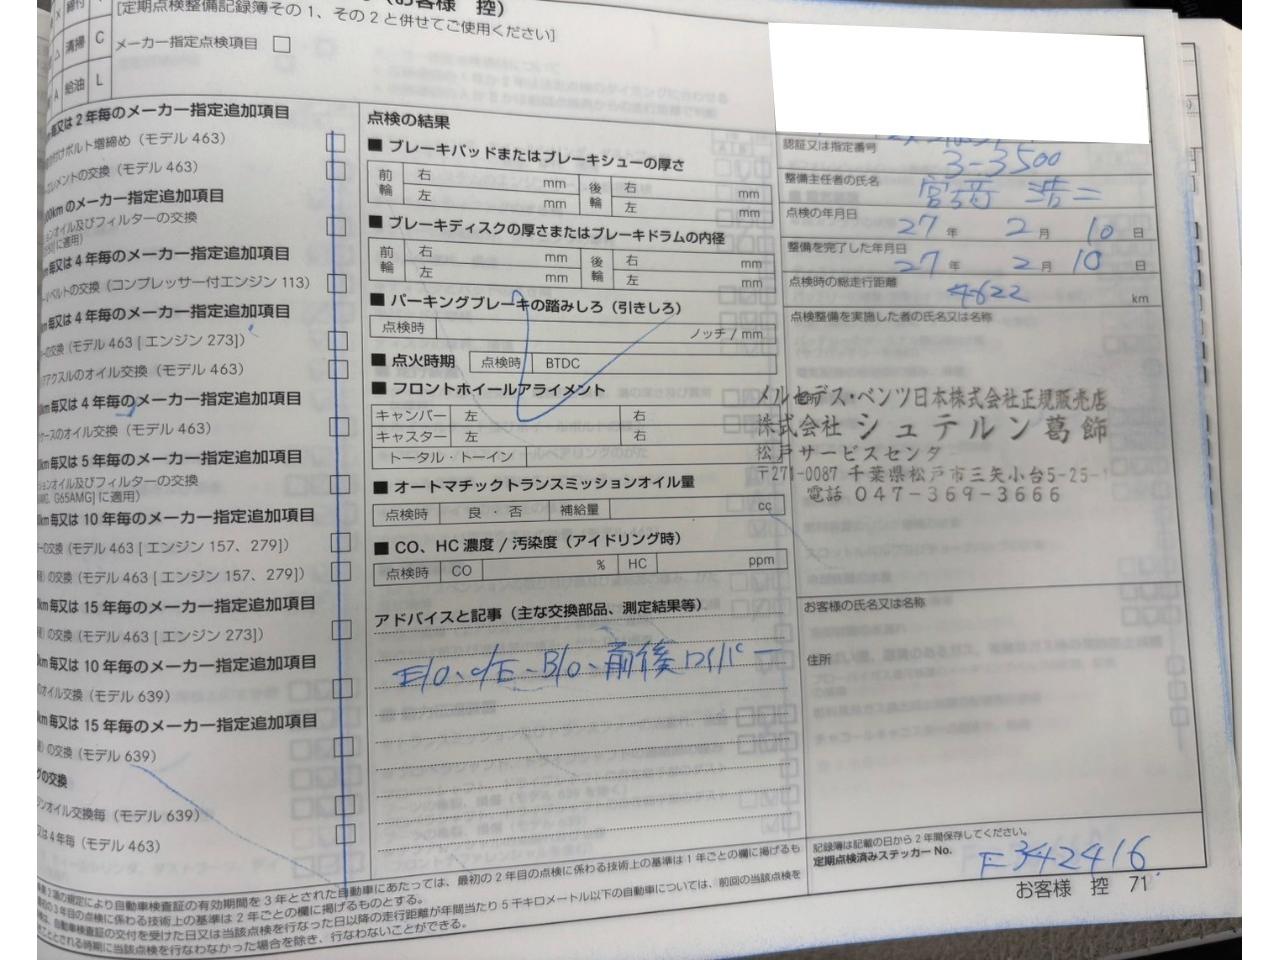 (お客様 控)
[定期点検整備記録簿その1、その2と併せてご使用ください]
締付
清掃 C
給油 L
メーカー指定点検項目
毎又は2年毎のメーカー指定追加項目
付けボルト増締め（モデル 463）
エレメントの交換（モデル 463）
00kmのメーカー指定追加項目
ションオイル及びフィルターの交換
に適用）
km毎又は4年毎のメーカー指定追加項目
ベルトの交換（コンプレッサー付エンジン 113）
km毎又は4年毎のメーカー指定追加項目
の交換（モデル 463 [ エンジン 273]）
アアクスルのオイル交換（モデル 463）
0km毎又は4年毎のメーカー指定追加項目
ケースのオイル交換（モデル 463）
km毎又は5年毎のメーカー指定追加項目
ションオイル及びフィルターの交換
G65AMG] に適用）
km毎又は10年毎のメーカー指定追加項目
の交換（モデル 463 [ エンジン 157、279]）
の交換（モデル 463 [ エンジン 157、279]）
km毎又は15年毎のメーカー指定追加項目
の交換（モデル 463 [ エンジン 273]）
km毎又は10年毎のメーカー指定追加項目
のオイル交換（モデル 639）
km毎又は15年毎のメーカー指定追加項目
の交換（モデル 639）
の交換
ンオイル交換毎（モデル 639）
又は4年毎（モデル 463）
点検の結果
■ ブレーキパッドまたはブレーキシューの厚さ
前輪 右 mm 後輪 右 mm
左 mm 左 mm
■ ブレーキディスクの厚さまたはブレーキドラムの内径
前輪 右 mm 後輪 右 mm
左 mm 左 mm
■ パーキングブレーキの踏みしろ（引きしろ）
点検時 ノッチ / mm
■ 点火時期 点検時 BTDC
■ フロントホイールアライメント
キャンバー 左 右
キャスター 左 右
トータル・トーイン
■ オートマチックトランスミッションオイル量
点検時 良 ・ 否 補給量 cc
■ CO、HC 濃度 / 汚染度（アイドリング時）
点検時 CO % HC ppm
アドバイスと記事（主な交換部品、測定結果等）
E/O、O/E、B/O、前後ワイパー
認証又は指定番号
3-3500
整備主任者の氏名
浩二
点検の年月日
27 年 2 月 10 日
整備を完了した年月日
27 年 2 月 10 日
点検時の総走行距離
4622 km
点検整備を実施した者の氏名又は名称
メルセデス・ベンツ日本株式会社正規販売店
株式会社 シュテルン葛飾
松戸サービスセンタ
〒271-0087 千葉県松戸市三矢小台5-25-1
電話 047-369-3666
お客様の氏名又は名称
住所
記録簿は記載の日から2年間保存してください。
定期点検済みステッカー No.
F342416
お客様 控 71
3項の規定により自動車検査証の有効期間を3年とされた自動車にあたっては、最初の2年目の点検に係わる技術上の基準は1年ごとの欄に掲げるも
最初の3年目の点検に係わる技術上の基準は2年ごとの欄に掲げるものとする。
は、自動車検査証の交付を受けた日又は当該点検を行なった日以降の走行距離が年間当たり5千キロメートル以下の自動車については、前回の当該点検を
こととされる時期に当該点検を行なわなかった場合を除き、行なわないことができる。